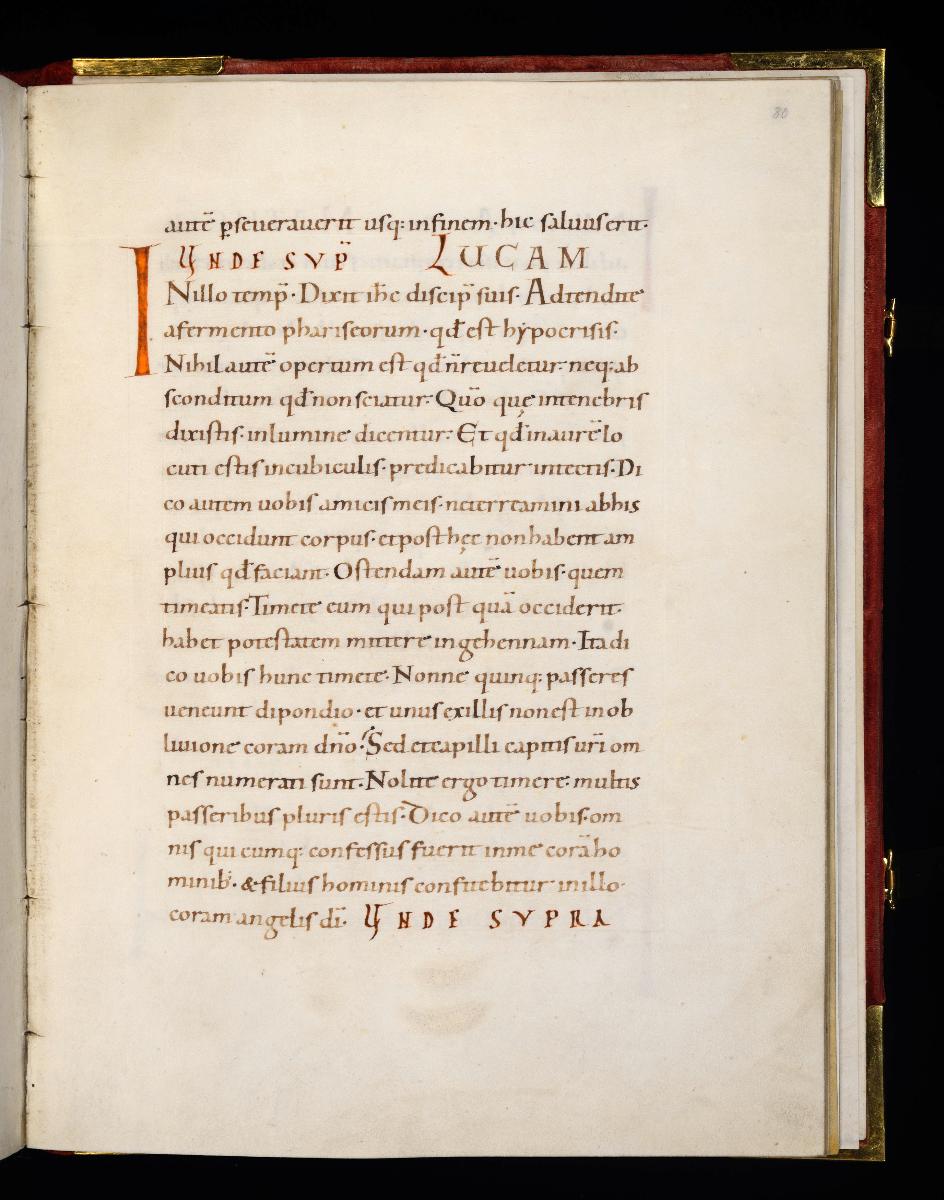 80
autē ꝑseuerauerit usq: infinem· hic saluus erit·
UNDE SUP̄ LUCAM
INillo temp̄· Dixit ihc̄ discip̄ suis· Adtendite
afermento phariseorum· qđ est hẏpocrisis·
Nihil autē opertum est qđ n̄ reueletur· neq: ab
sconditum qđ non sciatur· Quō quę intenebris
dixistis· inlumine dicentur· Et qđ inaurē lo
cuti estis incubiculis· predicabitur intectis· Di
co autem uobis amicis meis· neterreamini abhis
qui occidunt corpus· et post hęc non habent am
plius qđ faciant· Ostendam autē uobis· quem
timeatis· Timete eum qui post quā occiderit·
habet potestatem mittere ingehennam· Ita di
co uobis hunc timete· Nonne quinq: passeres
ueneunt dipondio· et unus exillis non est inob
liuione coram dn̄o· Sed et capilli capitis uri̅ om
nes numerati sunt· Nolite ergo timere· multis
passeribus pluris estis· Dico autē uobis· om
nis qui cumq: confessus fuerit inme corā ho
minib:· & filius hominis confitebitur inillo·
coram angelis di̅· UNDE SUPRA